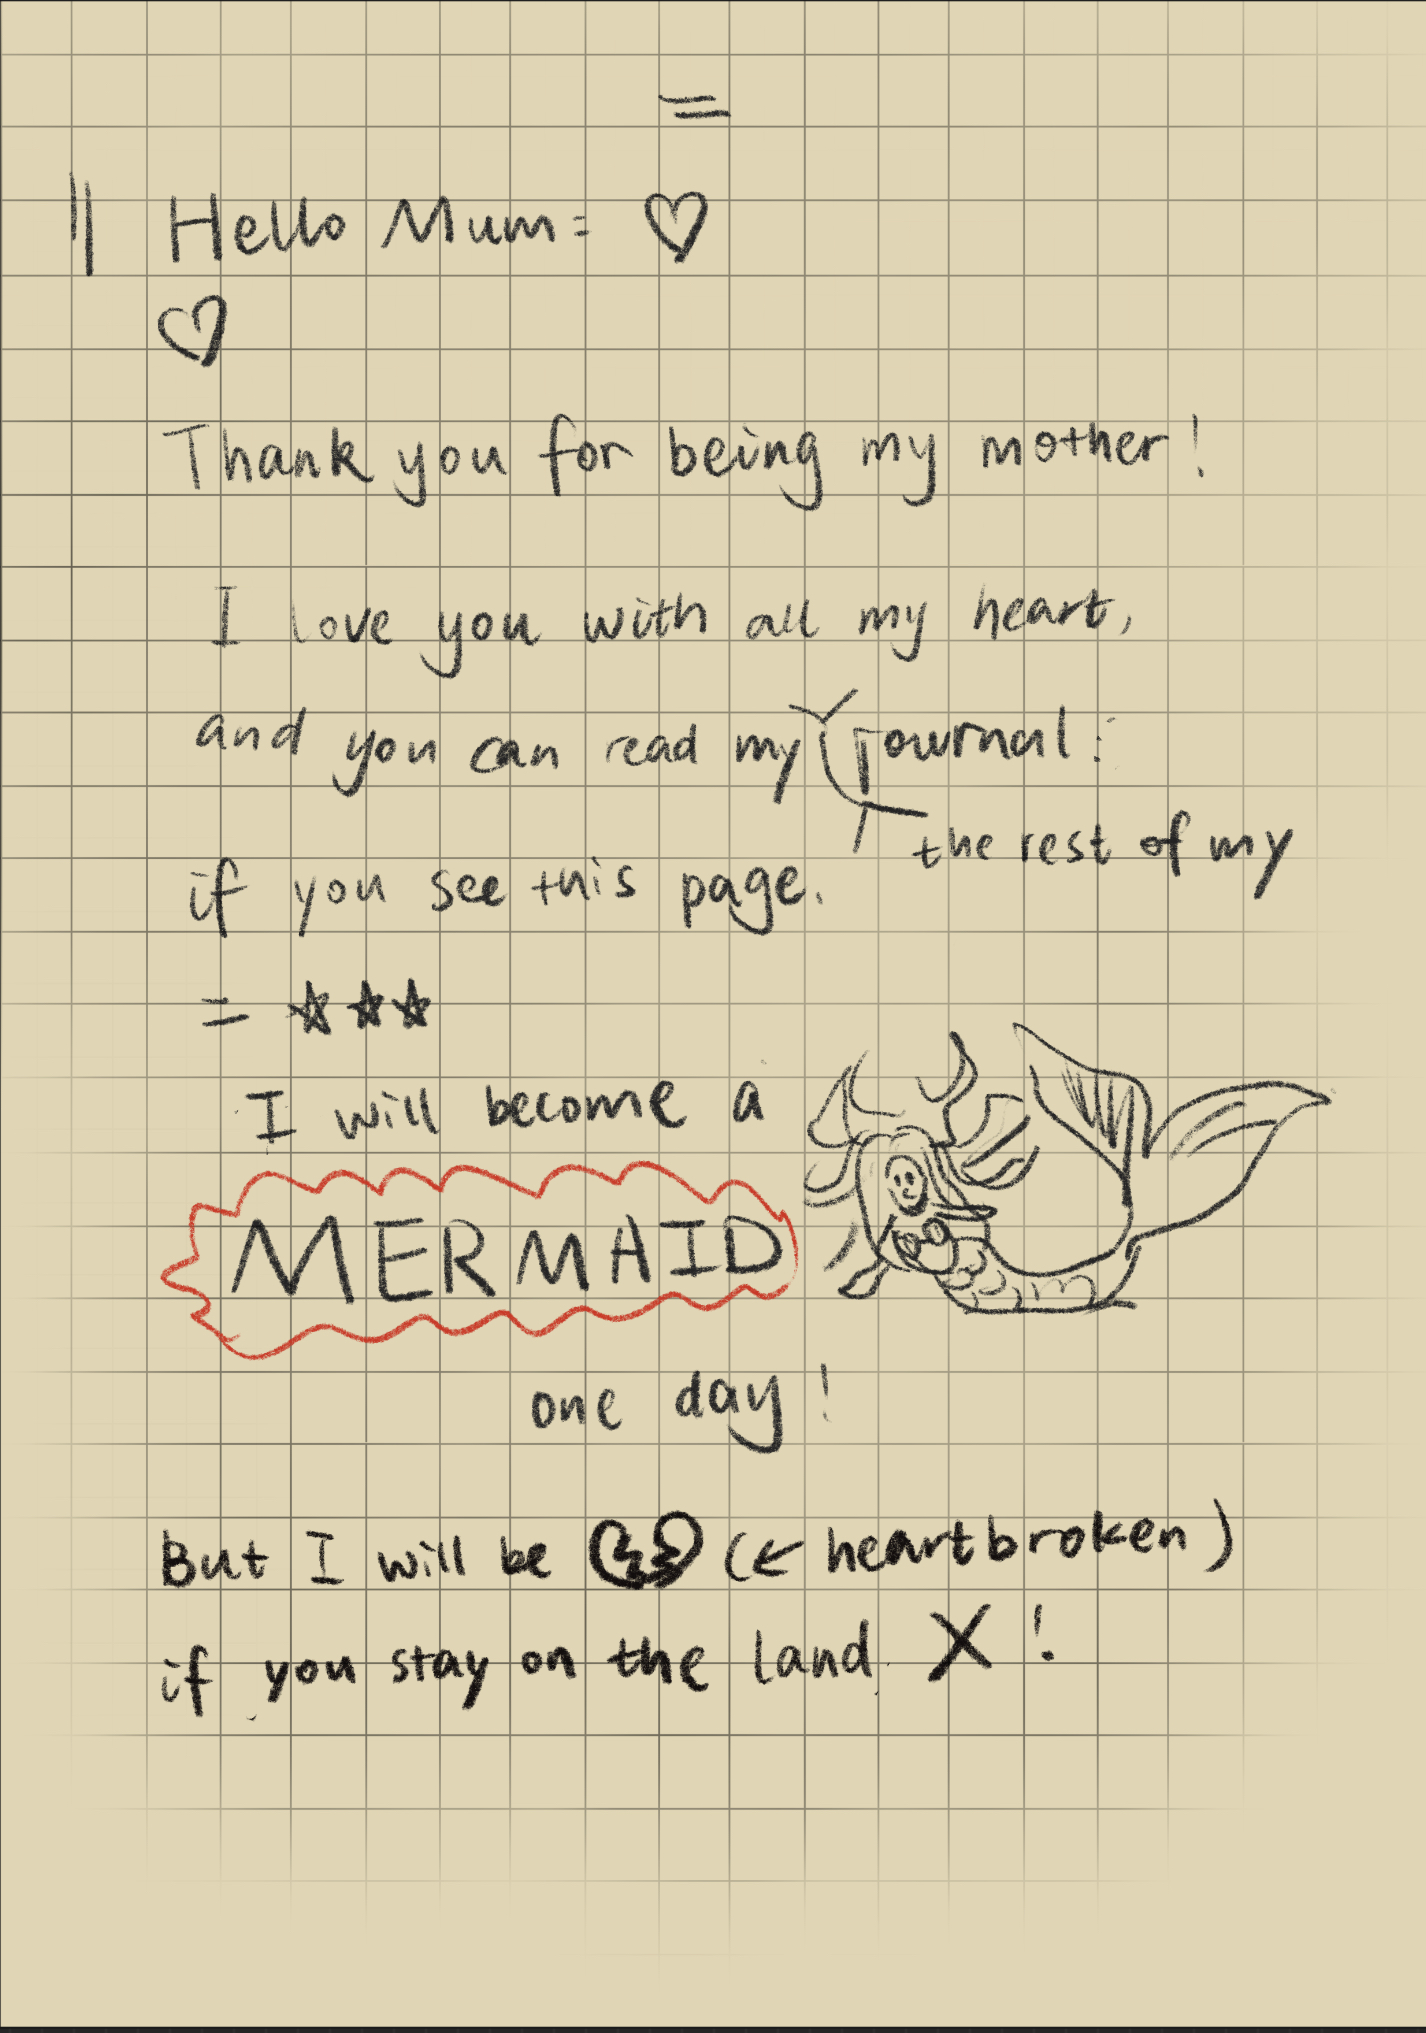 =
|| Hello Mum: ♡
♡
Thank you for being my mother!
I love you with all my heart,
and you can read my journal:
the rest of my
if you see this page.
= ☆☆☆
I will become a
MERMAID
one day!
But I will be 💔 (← heartbroken)
if you stay on the land X!